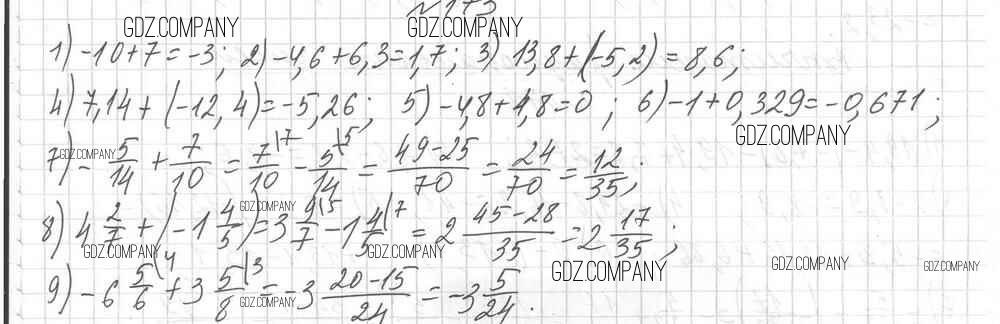 № 173
GDZ.COMPANY GDZ.COMPANY
1) -10+7=-3; 2) -4,6+6,3=1,7; 3) 13,8+(-5,2)=8,6;
4) 7,14+(-12,4)=-5,26; 5) -4,8+4,8=0; 6) -1+0,329=-0,671;
GDZ.COMPANY
7) -5/14 + 7/10 = 7/10\7 - 5/14\5 = (49-25)/70 = 24/70 = 12/35;
GDZ.COMPANY
8) 4 2/7 + (-1 4/5) = 3 9/7\5 - 1 4/5\7 = 2 (45-28)/35 = 2 17/35;
GDZ.COMPANY
GDZ.COMPANY GDZ.COMPANY GDZ.COMPANY GDZ.COMPANY
9) -6 5/6\4 + 3 5/8\3 = -3 (20-15)/24 = -3 5/24.
GDZ.COMPANY